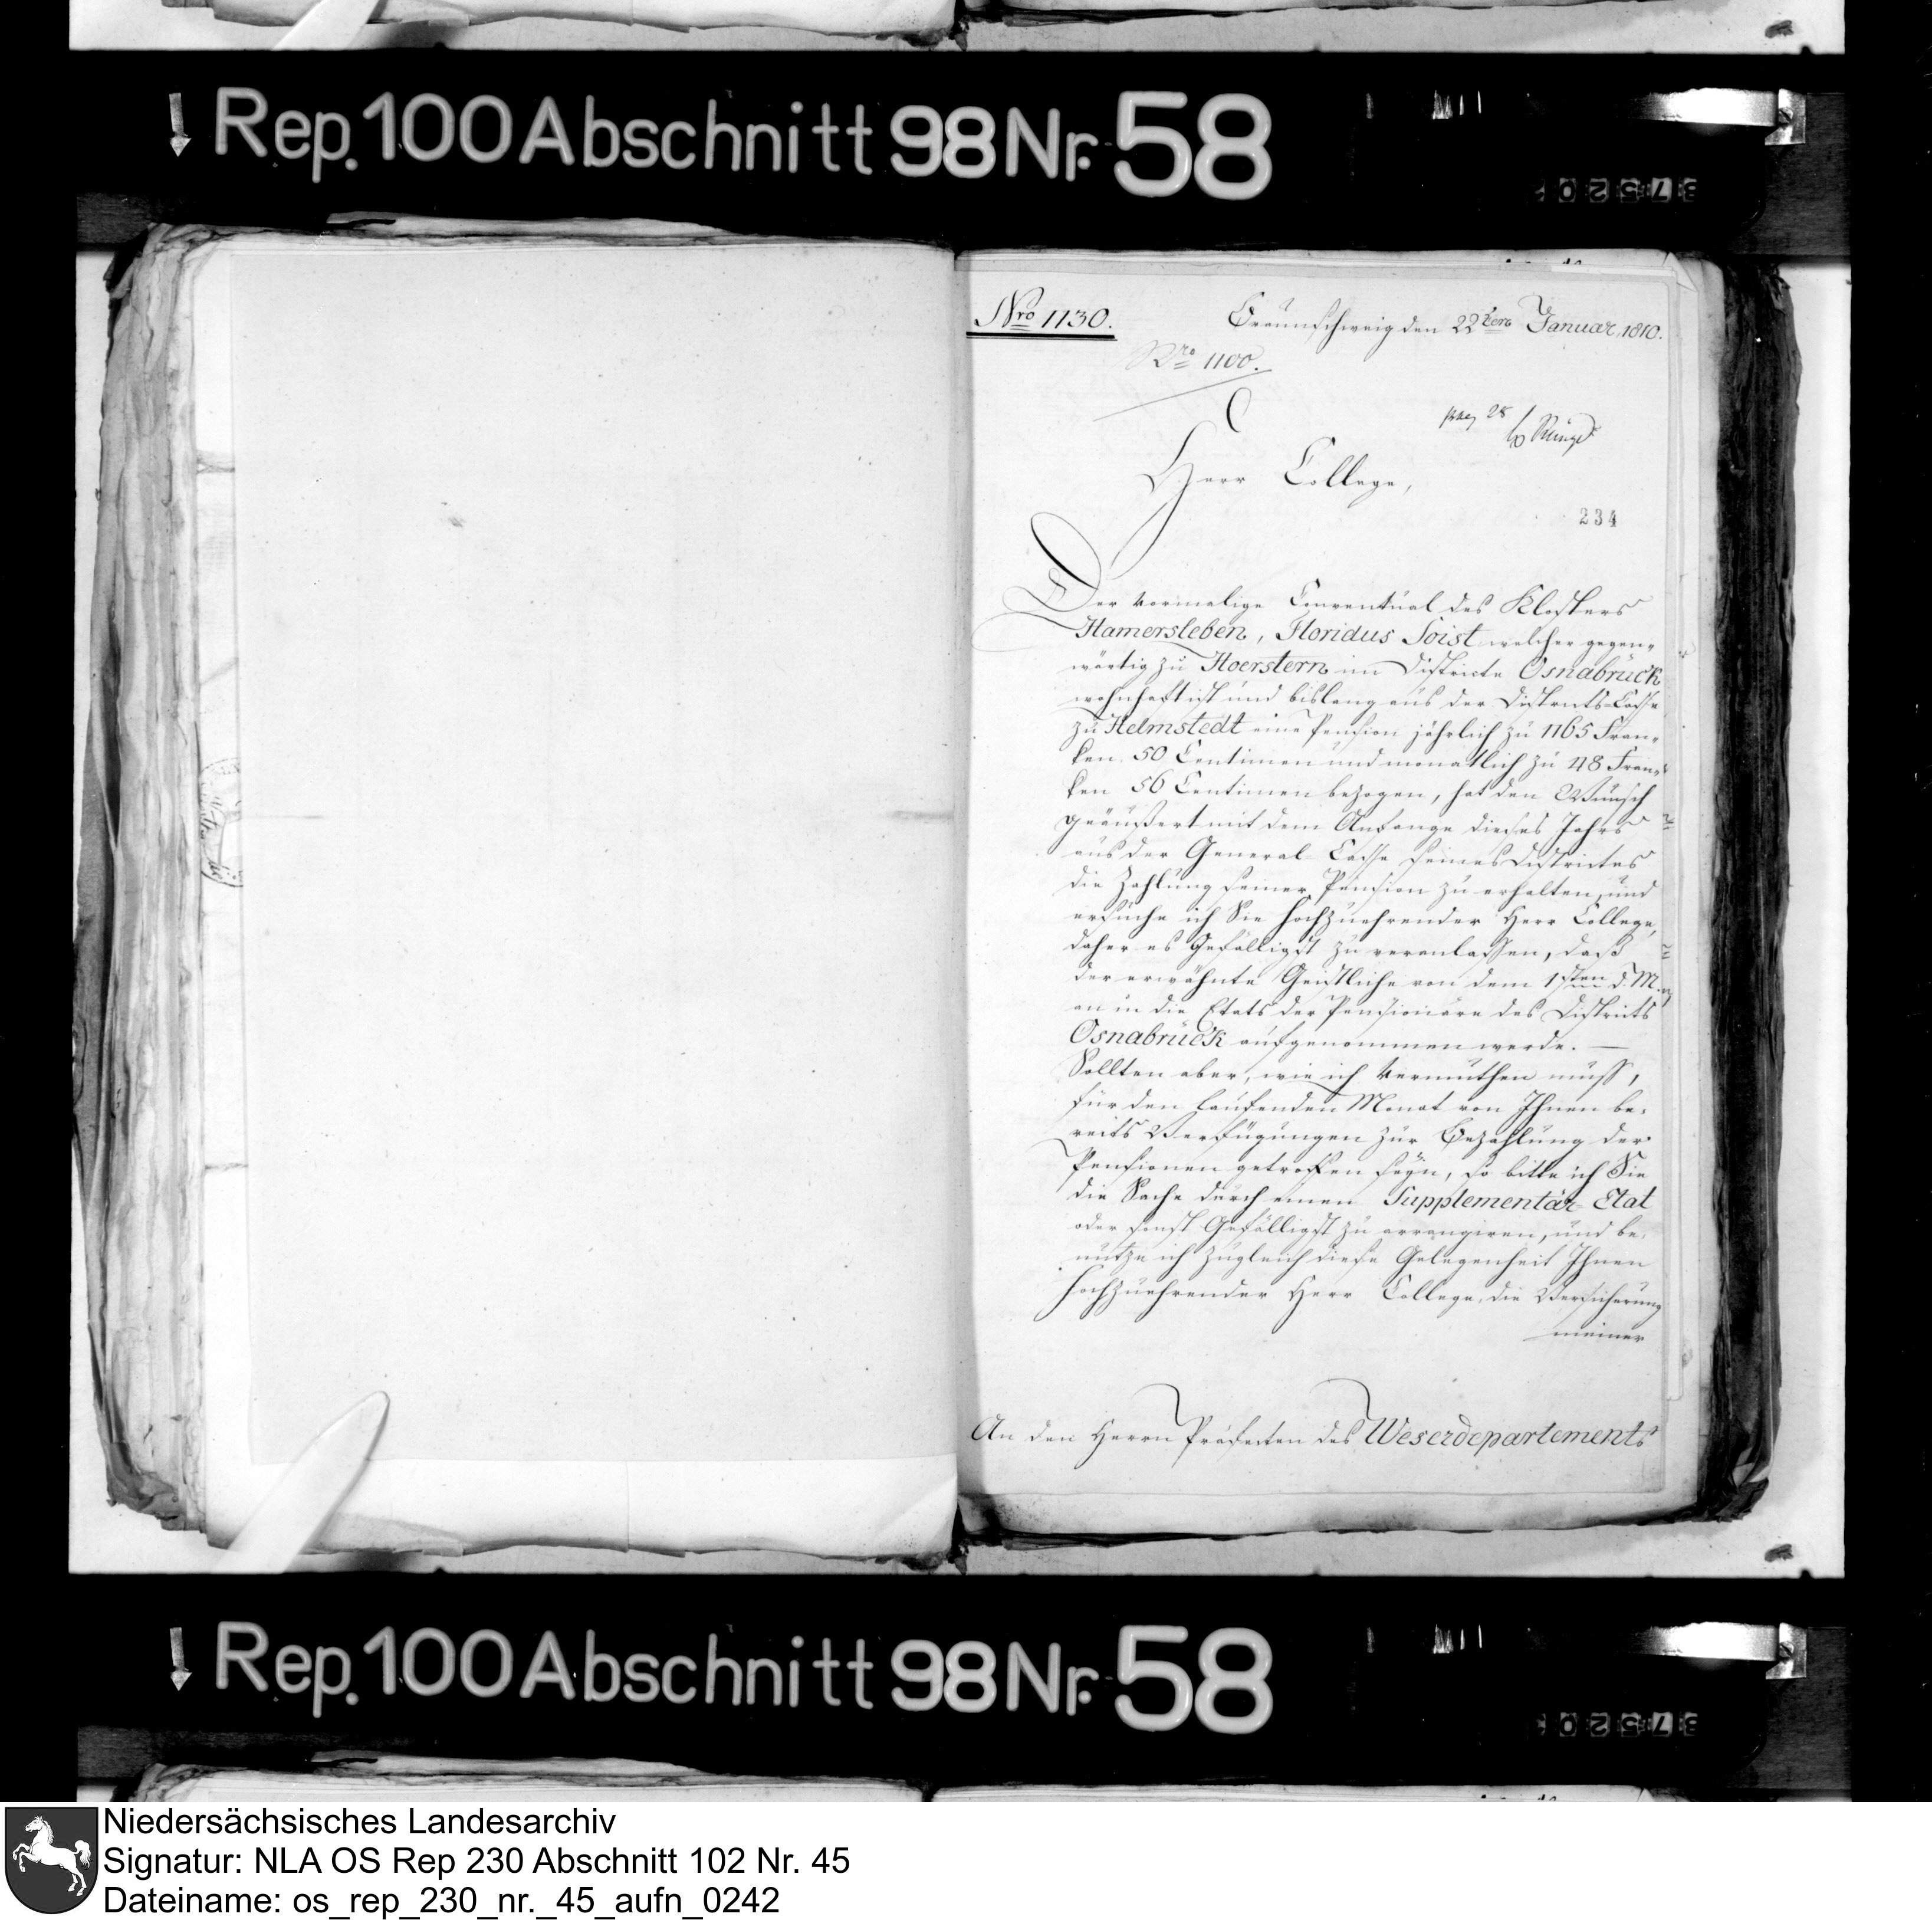 Rep. 100 Abschnitt 98 Nr. 58
Nro 1130.
Braunschweig den 22ten Januar 1810.
Nro 1100.
28
234
Herr College,
Der vormalige Conventual des Klosters
Hamersleben, Floridus Soist welcher gegen-
wärtig zu Hoerstern im Districte Osnabrück
wohnhaft ist und bislang aus der Districts-Casse
zu Helmstedt eine Pension jährlich zu 1165 Fran-
ken 50 Centimen und monatlich zu 48 Fran-
ken 56 Centimen bezogen, hat den Wunsch
geäußert mit dem Anfange dieses Jahrs
aus der General-Casse seines Districtes
die Zahlung seiner Pension zu erhalten, und
ersuche ich Sie hochzuehrender Herr College,
daher es gefälligst zu veranlassen, daß
der erwähnte Geistliche von dem 1sten d. M.
an in die Etats der Pensionäre des Districts
Osnabrück aufgenommen werde. —
Sollten aber, wie ich vermuthen muss,
für den laufenden Monat von Ihnen be-
reits Verfügungen zur Bezahlung der
Pensionen getroffen seyn, so bitte ich Sie
die Sache durch einen Supplementär-Etat
oder sonst gefälligst zu arrangiren, und be-
nutze ich zugleich diese Gelegenheit Ihnen
hochzuehrender Herr College, die Versicherung
meiner
An den Herrn Präfecten des Weserdepartements
Rep. 100 Abschnitt 98 Nr. 58
Niedersächsisches Landesarchiv
Signatur: NLA OS Rep 230 Abschnitt 102 Nr. 45
Dateiname: os_rep_230_nr._45_aufn_0242